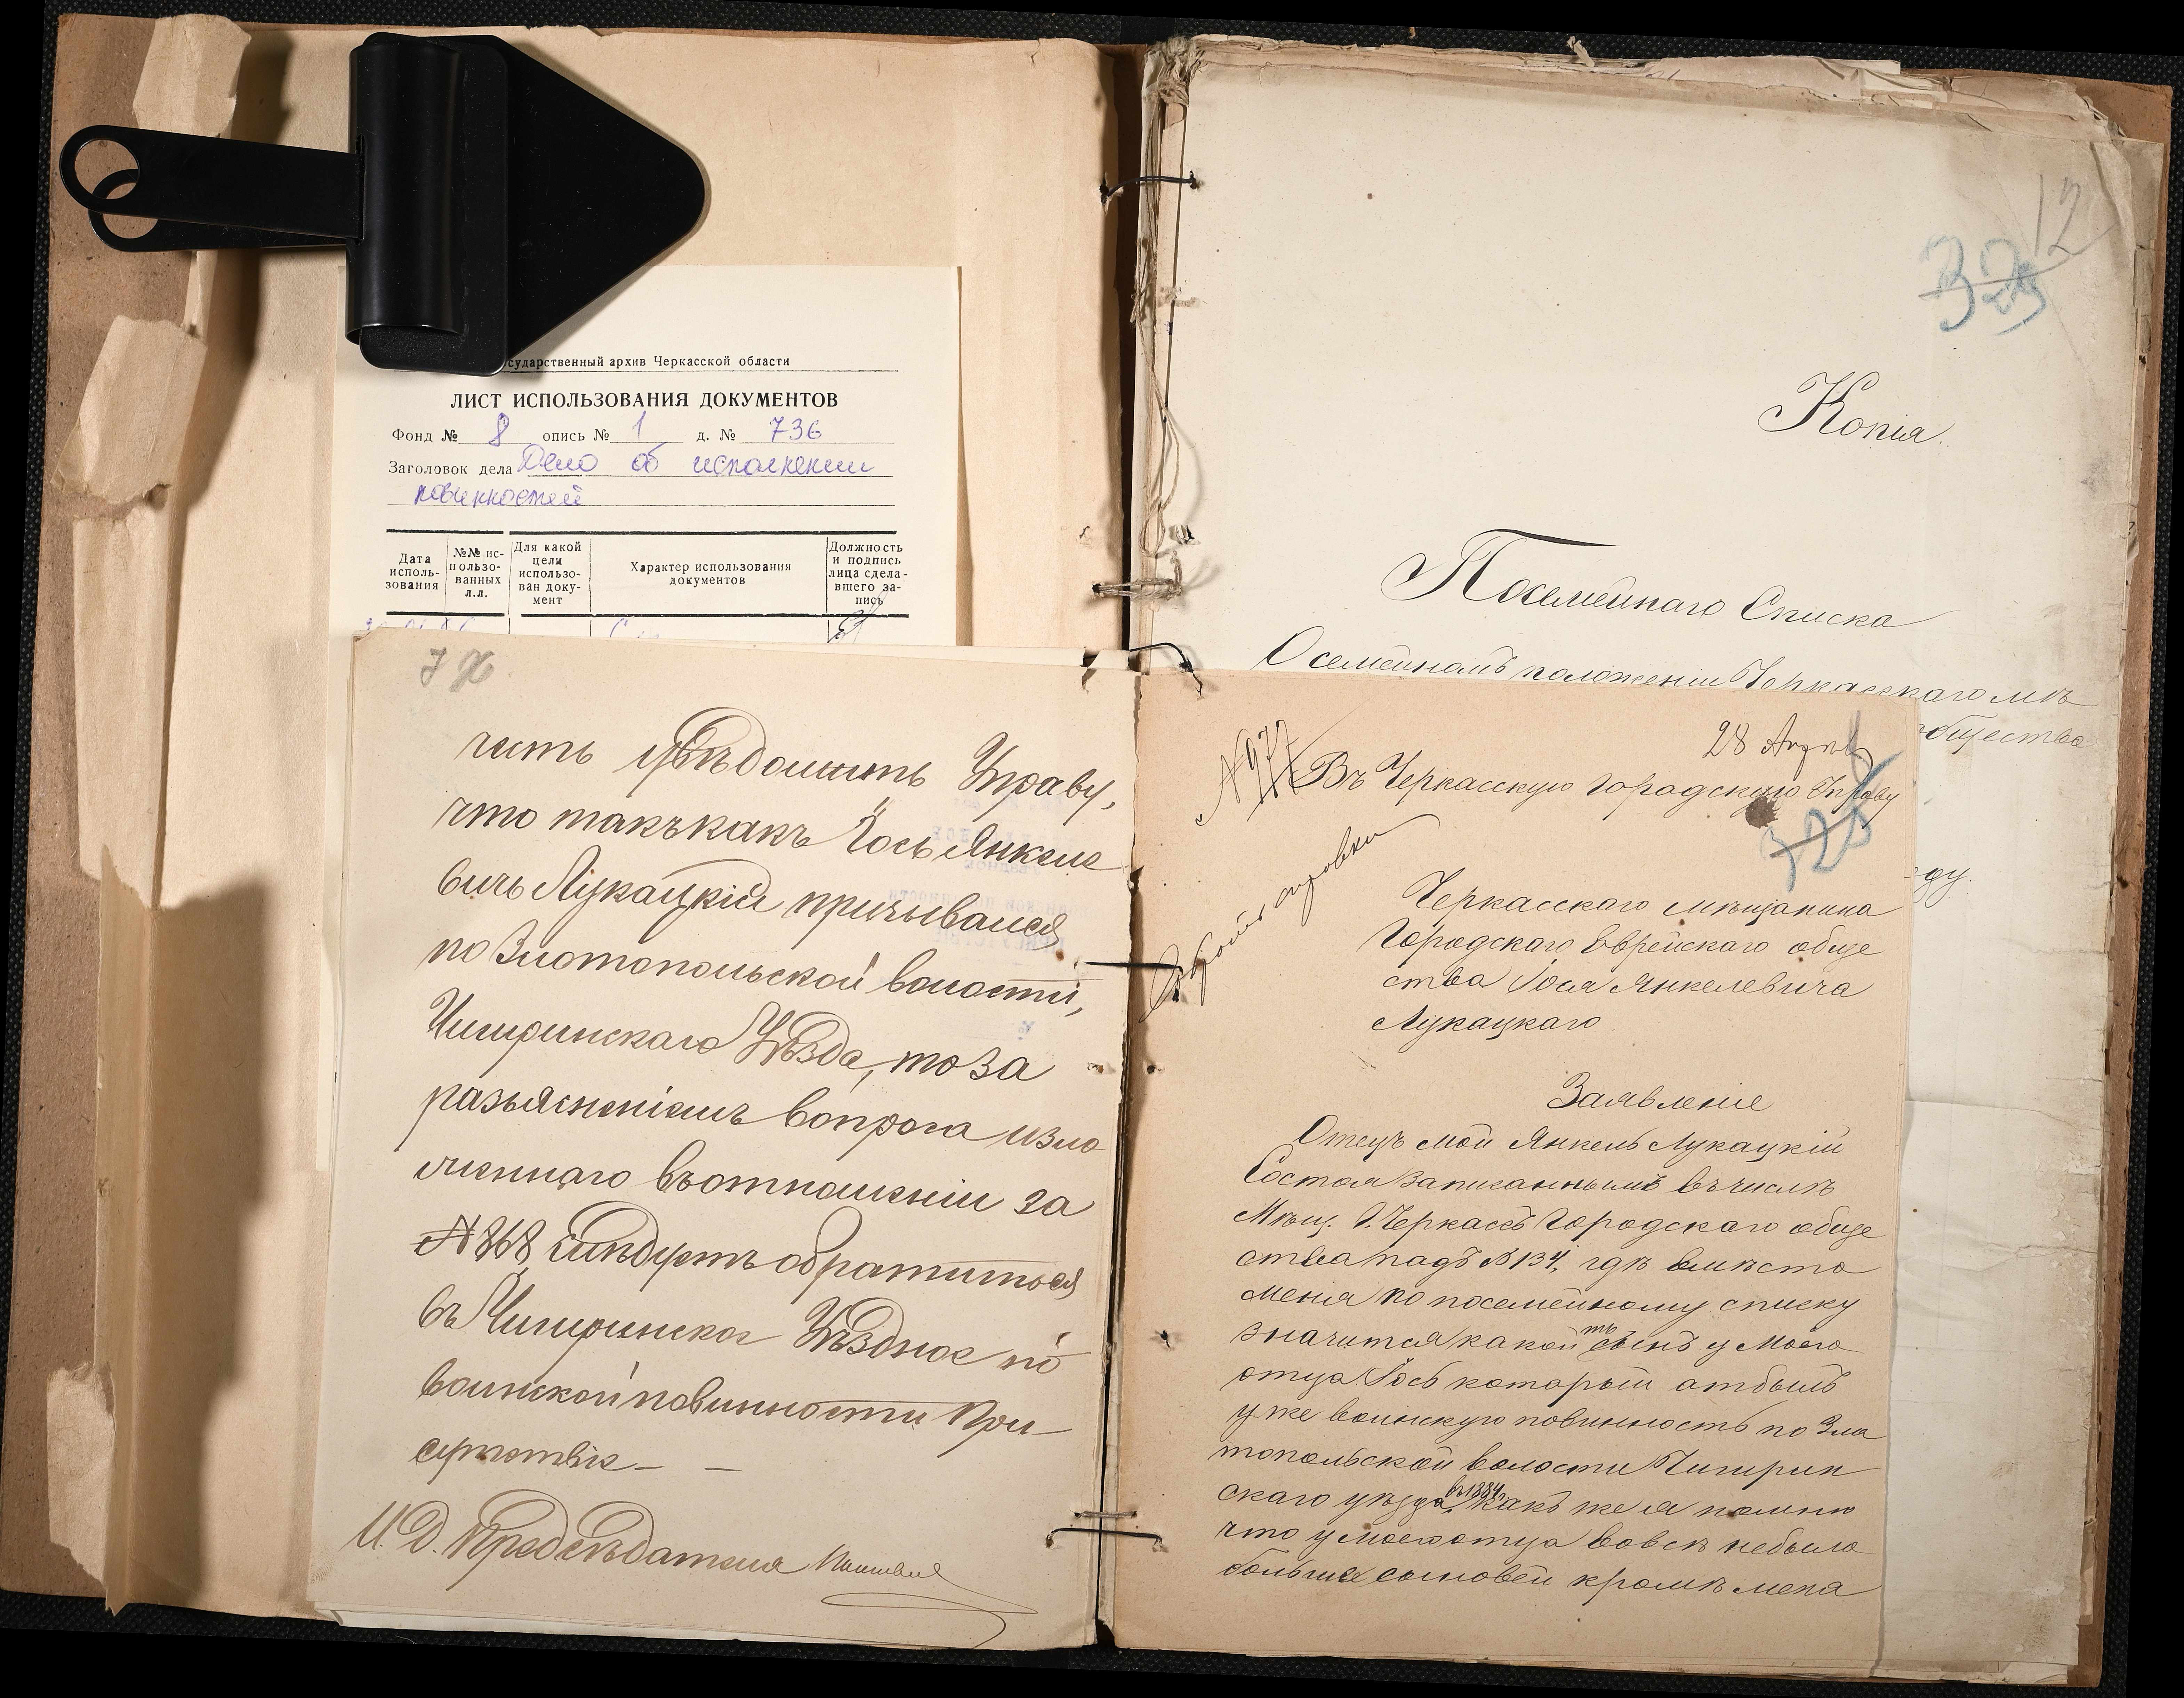 сударственный архив Черкасской области
ЛИСТ ИСПОЛЬЗОВАНИЯ ДОКУМЕНТОВ
Фонд № 8 опись № 1 д. № 736
Заголовок дела Дело об исполнении
повинностей
Дата исполь-зования
№№ ис-пользо-ванных л.л.
Для какой цели использо-ван доку-мент
Характер использования документов
Должность и подпись лица сдела-вшего за-пись
чить увѣдомить Управу,
что такъ какъ Іось Янкеле
вичъ Лукацкій призывался
по Златопольской волости,
Чигиринскаго Уѣзда, то за
разъясненіемъ вопроса изло
женнаго въ отношеніи за
№ 868, слѣдуетъ обратиться
въ Чигиринское Уѣздное по
воинской повинности При-
сутствіе - -
И. Д. Предсѣдателя
12
325
Копія.
Посемейнаго Списка
О семейномъ положеніи Черкасскаго мѣ
общества
ду.
№ 977
28 Апрѣл
Въ Черкасскую Городскую Управу
325
Черкасскаго мѣщанина
Городскаго Еврейскаго обще
ства Іося Янкелевича
Лукацкаго
Заявленіе
Отецъ мой Янкель Лукацкій
Состоя записаннымъ въ числѣ
Мѣщ. Г. Черкассъ Городскаго обще
ства подъ № 134, гдѣ вмѣсто
меня по посемейному списку
значится какой тъ сынъ у моего
отца Іось который отбылъ
уже воинскую повинность по Зла
топольской волости Чигирин
скаго уѣзда въ 1884, какъ же я помню
что у моего отца вовсѣ небыло
больше сыновей кромѣ меня